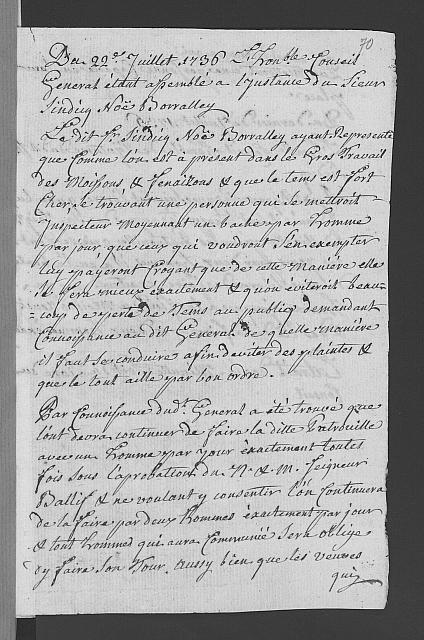 70
Du 22e. Juillet 1736 L'honble Conseil
General étant assemblé a l'instance du Sieur
Sindicq Noë Borralley
Le dit Sr. Sindicq Noë Borralley ayant Representé
que Comme lon est à présent dans le Gros Travail
des Moissons & Fenaisons & que le tems est fort
Cher, se trouvant une personne qui se mettroit
Inspecteur Moyennant un bache par homme
par jour que ceux qui voudront S'en exempter
luy payeront Croyant que de cette Maniére elle
se fera mieux exactement & qu'on éviteroit beau=
=coup de perte de Tems au public, demandant
Connoissance au dit General de quelle maniére
il faut se conduire afin d'eviter des plaintes &
que le tout aille par bon ordre.
Par Connoissance dudt. General a été trouvé que
l'on devra continuer de faire la ditte Patrouille
avec un homme par jour exactement toutes
fois sous l'aprobation du N. & M. Seigneur
Ballif & ne voulant y consentir l'on Continuera
de la faire par deux hommes exactement par jour
& tout hommes qui aura Communié sera obligé
d'y faire son Tour, aussy bien que les veuves
qui